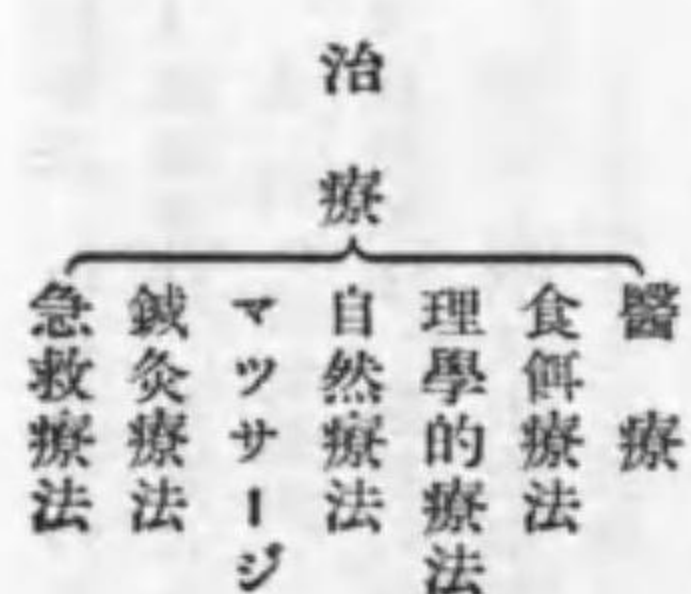 治療
醫療
食餌療法
理學的療法
自然療法
マツサージ
鍼灸療法
急救療法